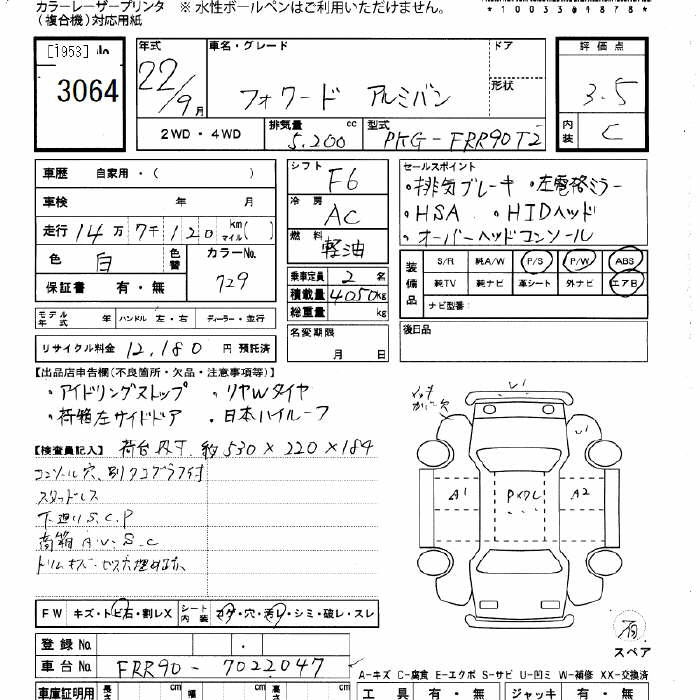 カラーレーザープリンタ ※ 水性ボールペンはご利用いただけません。
(複合機)対応用紙
*10033@4878*
[1953]
3064
年式 車名・グレード ドア
22/9月 フォワード アルミバン 形状
評価点
3.5
内装 C
2WD・4WD 排気量 5.200 cc 型式 PKG-FRR90T2
車歴 自家用・( )
車検 年 月
走行 14万7千120 km マイル( )
色 白 色替 カラーNo. 729
保証書 有・無
シフト F6
冷房 AC
燃料 軽油
乗車定員 2 名
積載量 4050kg
総重量 kg
セールスポイント
・排気ブレーキ ・左電格ミラー
・HSA ・HIDヘッド
・オーバーヘッドコンソール
装備品 S/R 純A/W P/S P/W ABS
純TV 純ナビ 革シート 外ナビ エアB
ナビ型番:
モデル年式 年 ハンドル 左・右 ディーラー・並行
名変期限
月 日
後日品
リサイクル料金 12,180 円 預託済
【出品店申告欄(不良箇所・欠品・注意事項等)】
・アイドリングストップ ・リヤWタイヤ
・荷箱左サイドドア ・日本ハイルーフ
【検査員記入】 荷台内寸 約530×220×184
コンソール穴、別タコグラフ付
スタッドレス
下廻りS.C.P
荷箱 A.U.S.C
A1 A2
FW キズ・トビ石・割レX シート内装 コゲ・穴・汚レ・シミ・破レ・スレ
スペア
登録No.
車台No. FRR90-7022047
A-キズ C-腐食 E-エクボ S-サビ U-凹ミ W-補修 XX-交換済
車庫証明用 長さ cm 幅 cm cm 工具 有・無 ジャッキ 有・無